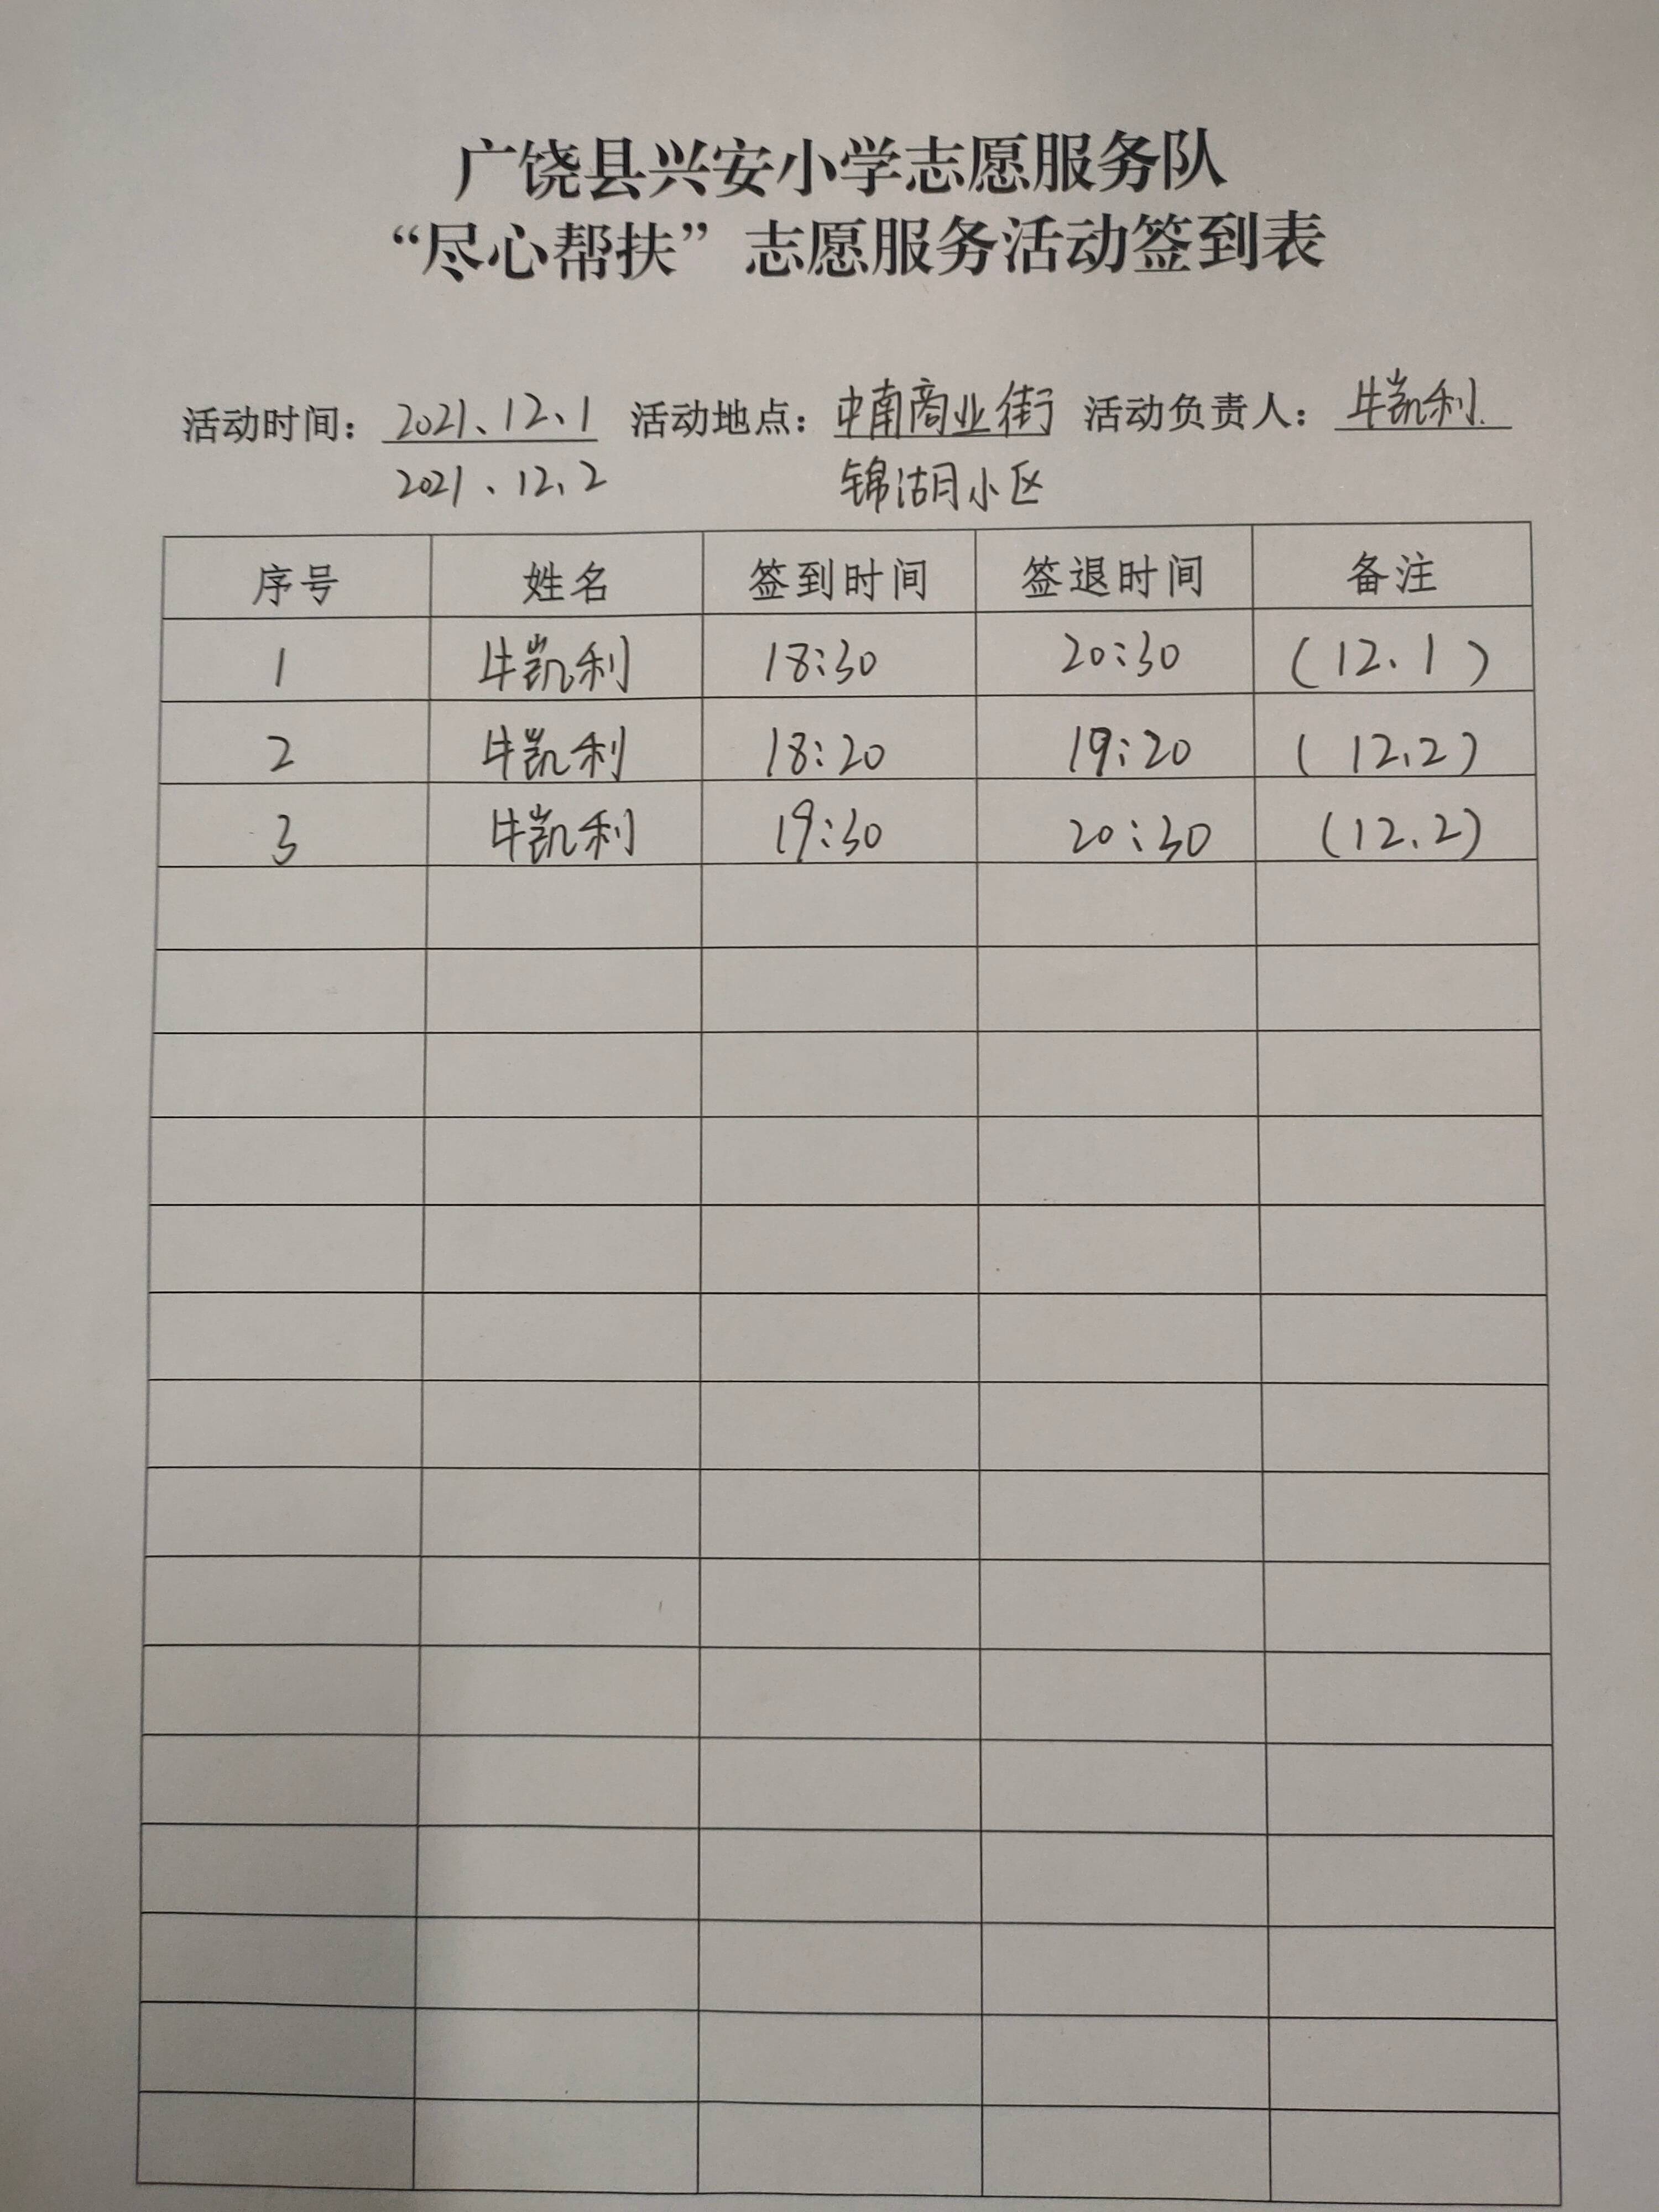 广饶县兴安小学志愿服务队
“尽心帮扶”志愿服务活动签到表
活动时间：2021、12、1 活动地点：中南商业街 活动负责人：牛凯利.
2021、12、2 锦湖小区
序号 姓名 签到时间 签退时间 备注
1 牛凯利 18:30 20:30 (12、1)
2 牛凯利 18:20 19:20 (12、2)
3 牛凯利 19:30 20:30 (12、2)